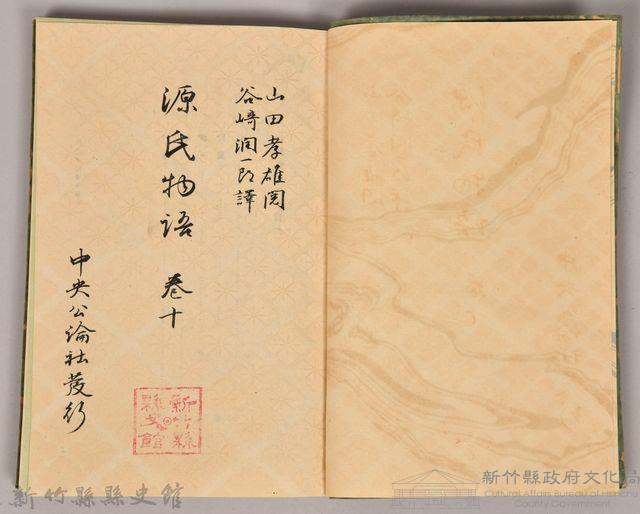 山田孝雄閲
谷崎潤一郎譯
源氏物語 卷十
中央公論社發行
新竹縣
縣史館
新竹縣縣史館
新竹縣政府文化局
Cultural Affairs Bureau of Hsinchu
County Government